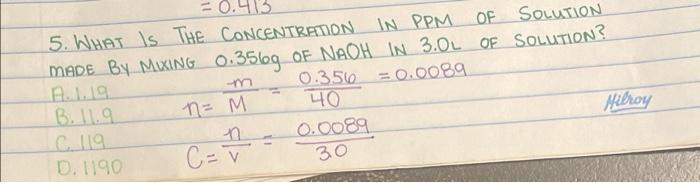 = 0.413
5. WHAT IS THE CONCENTRATION IN PPM OF SOLUTION
MADE BY MIXING 0.356g OF NaOH IN 3.0L OF SOLUTION?
A. 1.19
n = m/M = 0.356/40 = 0.0089
B. 11.9
Hilroy
C. 119
C = n/v = 0.0089/3.0
D. 1190